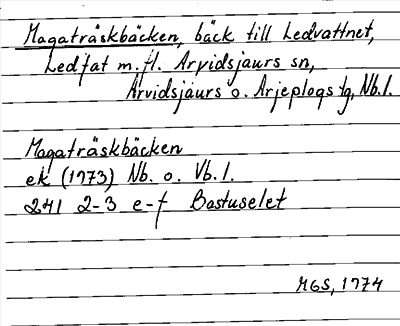 Magaträskbäcken, bäck till Ledvattnet,
Ledfat m.fl. Arvidsjaurs sn,
Arvidsjaurs o. Arjeplogs tg, Nb.l.
Magaträskbäcken
ek (1973) Nb. o. Vb. l.
24I 2-3 e-f Bastuselet
MGS, 1974